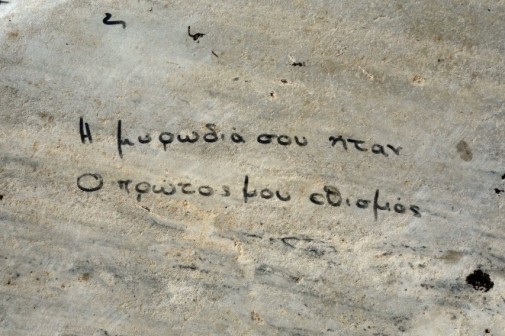 Η μυρωδιά σου ηταν
Ο πρώτος μου εθισμός